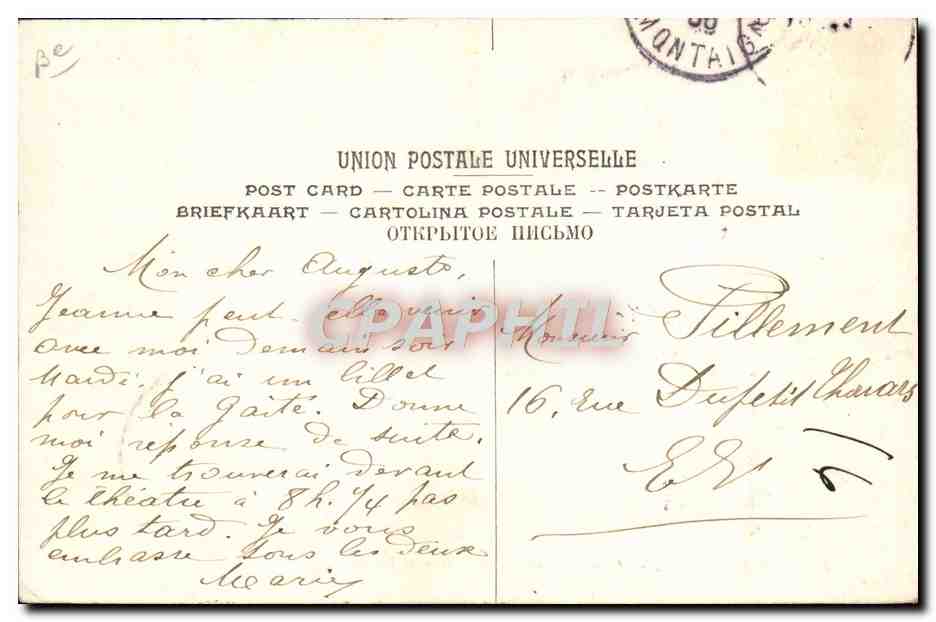 Be
06
MONTAIGN
UNION POSTALE UNIVERSELLE
POST CARD — CARTE POSTALE -- POSTKARTE
BRIEFKAART — CARTOLINA POSTALE — TARJETA POSTAL
ОТКРЫТОЕ ПИСЬМО
Mon cher Auguste,
Jeanne peut-elle venir
avec moi demain soir
Mardi. J'ai un billet
pour la Gaité. Donne
moi réponse de suite.
Je me trouverai devant
le théâtre à 8h. 1/4 pas
plus tard. Je vous
embrasse tous les deux
Marie
Monsieur Pillement
16, rue Dupetit Thouars
EV
CPAPHIL